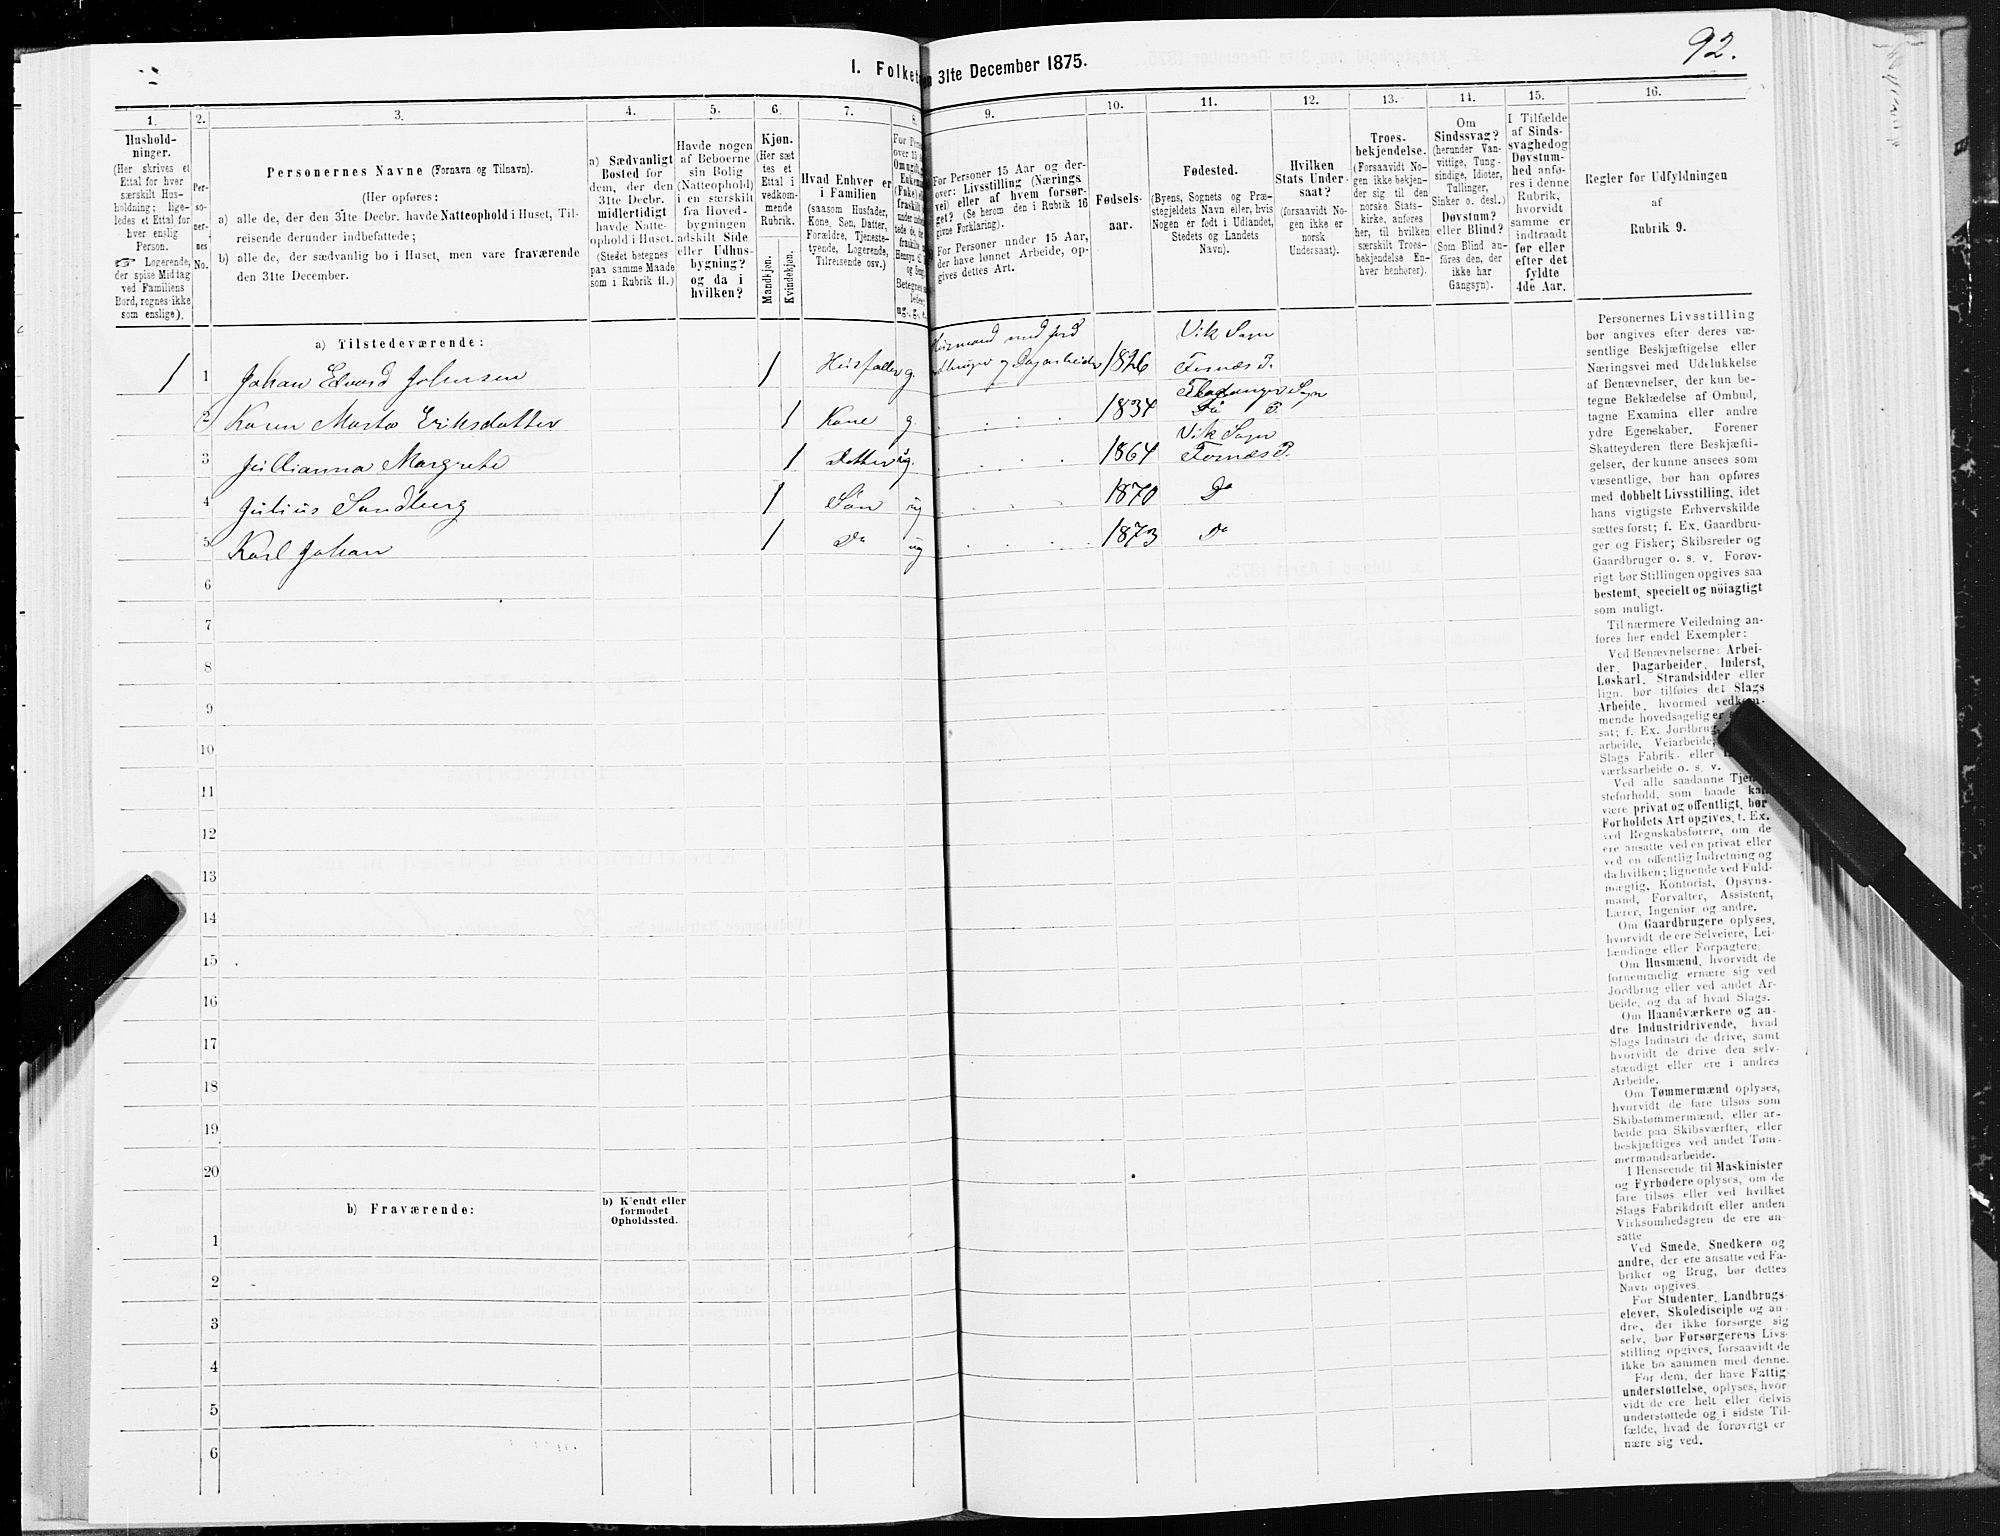 92.
I. Folket
n 31te December 1875.
1.
2.
3.
4.
5.
6.
7.
8.
9.
10.
11.
12.
13.
14.
15.
16.
Hushold-
ninger.
(Her skrives et
Ettal for hver
særskilt Hus-
holdning; lige-
ledes et Ettal for
hver enslig
Person.
☞ Logerende,
der spise Middag
ved Familiens
Bord, regnes ikke
som enslige).
Per-
so-
ner-
nes
No.
Personernes Navne (Fornavn og Tilnavn).
(Her opføres:
a) alle de, der den 31te Decbr. havde Natteophold i Huset, Til-
reisende derunder indbefattede;
b) alle de, der sædvanlig bo i Huset, men vare fraværende
den 31te December.
a) Sædvanligt
Bosted for
dem, der den
31te Decbr.
midlertidigt
havde Natte-
ophold i Huset.
(Stedet betegnes
paa samme Maade
som i Rubrik 11.)
Havde nogen
af Beboerne
sin Bolig
(Natteophold)
i en særskilt
fra Hoved-
bygningen
adskilt Side
eller Udhus-
bygning?
og da i
hvilken?
Kjøn.
(Her sæt
tes et
Ettal i
vedkom-
mende
Rubrik.
Mandkjøn.
Kvindekjøn.
Hvad Enhver er
i Familien
(saasom Husfader,
Kone, Søn, Datter,
Forældre, Tjeneste-
tyende, Logerende,
Tilreisende osv.)
For Personer 15 Aar og der-
over: Livsstilling (Nærings
vei) eller af hvem forsør-
get? (Se herom den i Rubrik 16
givne Forklaring).
For Personer under 15 Aar,
der have lønnet Arbeide, op-
gives dettes Art.
Fødsels-
aar.
Fødested.
(Byens, Sognets og Præ-
stegjeldets Navn eller, hvis
Nogen er født i Udlandet,
Stedets og Landets
Navn).
Hvilken
Stats Under-
saat?
(forsaavidt No-
gen ikke er
norsk
Undersaat).
Troes-
bekjendelse.
(Forsaavidt No-
gen ikke bekjen-
der sig til den
norske Stats-
kirke, anføres
her, til hvilken
særskilt Troes-
bekjendelse En-
hver henhører).
Om
Sindssvag?
(herunder Van-
vittige, Tung-
sindige, Idioter,
Tullinger,
Sinker o. desl.)
Døvstum?
eller Blind?
(Som Blind an-
føres den, der
ikke har
Gangsyn).
I Tilfælde
af Sinds-
svaghed og
Døvstum-
hed anfø-
res i denne
Rubrik,
hvorvidt
samme er
indtraadt
før eller
efter det
fyldte
4de Aar.
Regler for Udfyldningen
af
Rubrik 9.
a) Tilstedeværende:
1 1 Johan Edvard Johansen 1 Husfader g. Husmand med jord 1826 Vik Sogn
Fornæs P.
2 Karen Marta Eriksdatter 1 Kone g. 1834 Sogn
Do P.
3 Julianna Margrete 1 Datter ug. 1864 Vik Sogn
Fornæs P.
4 Julius Sandberg 1 Søn ug 1870 Do
5 Karl Johan 1 Do ug 1873 Do
6
7
8
9
10
11
12
13
14
15
16
17
18
19
20
b) Fraværende:
b) Kjendt eller
formodet
Opholdssted.
1
2
3
4
5
6
Personernes Livsstilling
bør angives efter deres væ-
sentlige Beskjæftigelse eller
Næringsvei med Udelukkelse
af Benævnelser, der kun be-
tegne Beklædelse af Ombud,
tagne Examina eller andre
ydre Egenskaber. Forener
Skatteyderen flere Beskjæfti-
gelser, der kunne ansees som
væsentlige, bør han opføres
med dobbelt Livsstilling, idet
hans vigtigste Erhvervskilde
sættes først; f. Ex. Gaardbru-
ger og Fisker; Skibsreder og
Gaardbruger o. s. v. Forøv-
rigt bør Stillingen opgives saa
bestemt, specielt og nöiagtigt
som muligt.
Til nærmere Veiledning an-
føres her endel Exempler:
Ved Benævnelserne: Arbei-
der, Dagarbeider, Inderst,
Løskarl, Strandsidder eller
lign. bør tilføies det Slags
Arbeide, hvormed vedkom-
mende hovedsagelig er
sat; f. Ex. Jordbrug,
arbeide, Veiarbeide,
Slags Fabrik- eller
værksarbeide o. s. v.
Ved alle saadanne Tjene-
steforhold, som baade kan
være privat og offentligt, bør
Forholdets Art opgives, t. Ex.
ved Regnskabsførere, om de
ere ansatte ved en privat eller
ved en offentlig Indretning og
da hvilken; lignende ved Fuld-
mægtig, Kontorist, Opsyns-
mand, Forvalter, Assistent,
Lærer, Ingeniør og andre.
Om Gaardbrugere oplyses,
hvorvidt de ere Selveiere, Lei-
lændinge eller Forpagtere.
Om Husmænd, hvorvidt de
fornemmelig ernære sig ved
Jordbrug eller ved andet Ar-
beide, og da af hvad Slags.
Om Haandværkere og an-
dre Industridrivende, hvad
Slags Industri de drive, samt
hvorvidt de drive den selv-
stændigt eller ere i andres
Arbeide.
Om Tømmermænd oplyses,
hvorvidt de fare tilsøs som
Skibstømmermænd, eller ar-
beide paa Skibsværfter, eller
beskjæftiges ved andet Tøm-
mermandsarbeide.
I Henseende til Maskinister
og Fyrbødere oplyses, om de
fare tilsøs eller ved hvilket
Slags Fabrikdrift eller anden
Virksomhedsgren de ere an-
satte
Ved Smede, Snedkere og
andre, der ere ansatte ved Fa-
briker og Brug, bør dettes
Navn opgives.
For Studenter, Landbrugs-
elever, Skoledisciple og an-
dre, der ikke forsørge sig
selv, bør Forsørgerens Livs-
stilling opgives, forsaavidt de
ikke bo sammen med denne.
For dem, der have Fattig-
understøttelse, oplyses, hvor-
vidt de ere helt eller delvis
understøttede og i sidste Til-
fælde, hvad de forøvrigt er
nære sig ved.